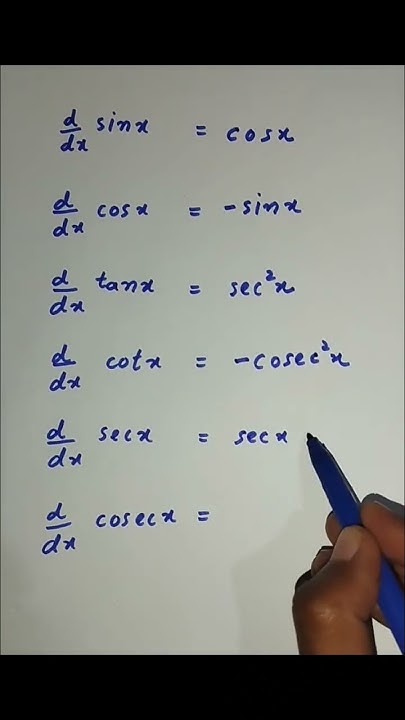 d/dx sinx = cosx
d/dx cosx = -sinx
d/dx tanx = sec²x
d/dx cotx = -cosec²x
d/dx secx = secx
d/dx cosecx =